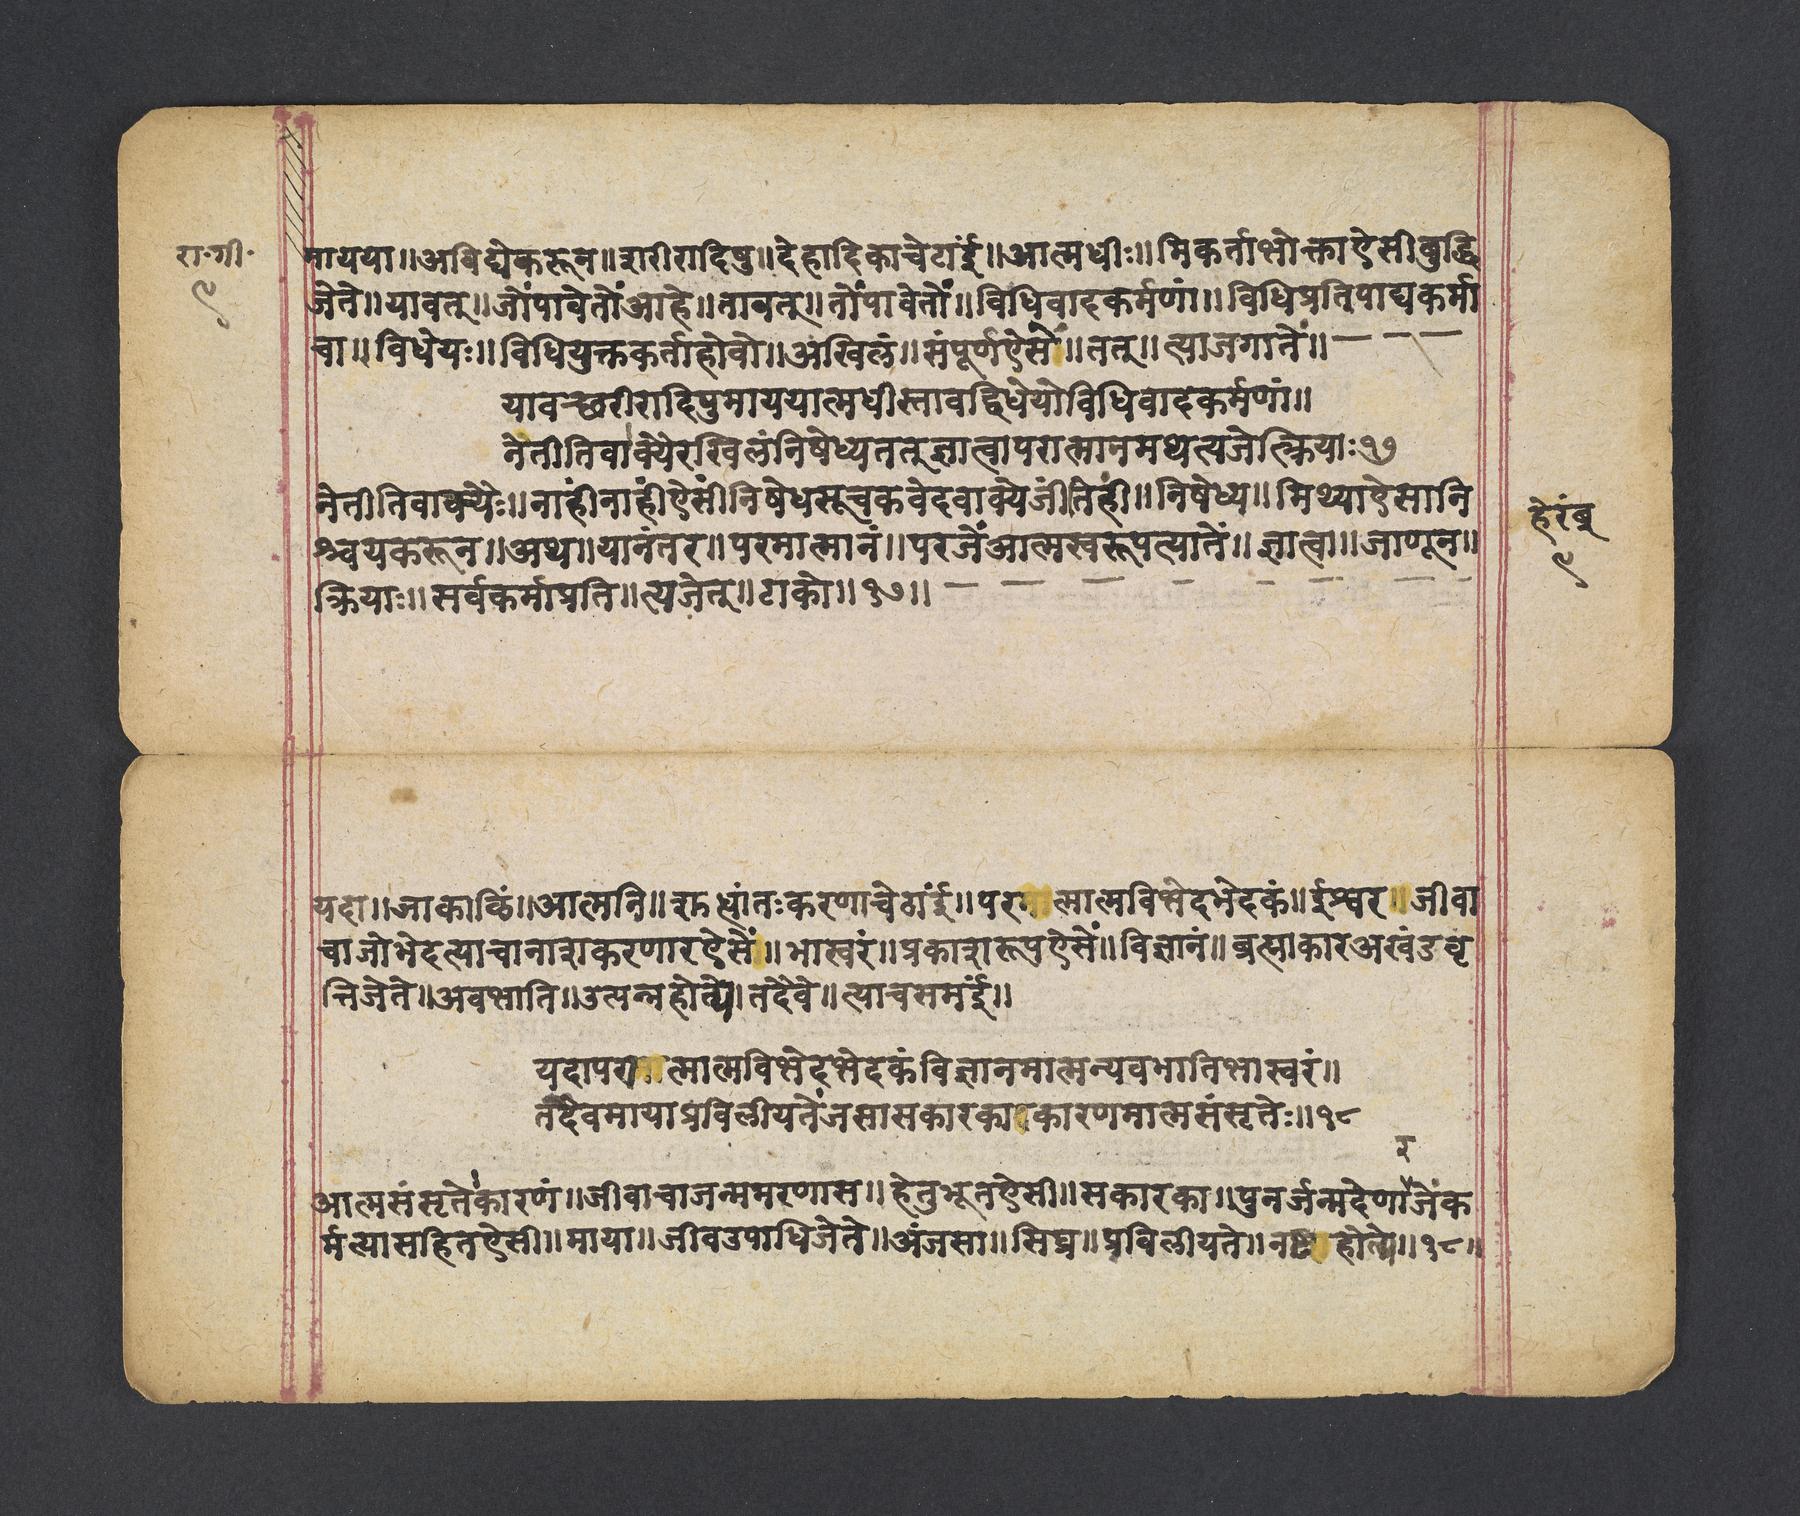 रा.गी.
९
मायया॥अविद्येकरून॥शरीरादिषु॥देहादिकाचेठाईं॥आत्मधीः॥मिकर्ताभोक्ताऐसीबुद्धि
जेते॥यावत्॥जोंपावेतोंआहे॥तावत्॥तोंपावेतों॥विधिवादकर्मणां॥विधिप्रतिपाद्यकर्मा
चा॥विधेयः॥विधियुक्तकर्ताहोवो॥अखिलं॥संपूर्णऐसें॥तत्॥त्याजगातें॥
यावच्छरीरादिषुमाययात्मधीस्तावद्विधेयोविधिवादकर्मणां॥
नेतीतिवाक्यैरखिलंनिषेध्यतत्ज्ञात्वापरात्मानमथत्यजेत्क्रियाः१७
नेतीतिवाक्यैः॥नाहींनाहींऐसींनिषेधसूचकवेदवाक्येजींतेहीं॥निषेध्य॥मिथ्याऐसानि
श्चयकरून॥अथ॥यानंतर॥परमात्मानं॥परजेंआत्मस्वरूपत्यातें॥ज्ञात्वा॥जाणून॥
क्रियाः॥सर्वकर्माप्रति॥त्यजेत्॥टाको॥१७॥
हेरंब
९
यदा॥जाकाळिं॥आत्मनि॥शुध्धांतःकरणाचेठाईं॥परमात्मात्मविभेदभेदकं॥ईश्वर॥जीवा
चाजोभेदत्याचानाशकरणारऐसें॥भास्वरं॥प्रकाशरूपऐसें॥विज्ञानं॥ब्रह्माकारअखंडवृ
त्तिजेते॥अवभाति॥उत्पन्नहोत्ये॥तदैवे॥त्याचसमईं॥
यदापरमात्मात्मविभेदभेदकंविज्ञानमात्मन्यवभातिभास्वरं॥
तदैवमायाप्रविलीयतेंजसासकारकाकारणमात्मसंसृतेः॥१८
र
आत्मसंसृतेकारणं॥जीवाचाजन्ममरणास॥हेतुभूतऐसी॥सकारका॥पुनर्जन्मदेणाजेंक
र्मत्यासहितऐसी॥माया॥जीवउपाधिजेते॥अंजसा॥सिघ्र॥प्रविलीयते॥नष्टहोत्ये॥१८॥